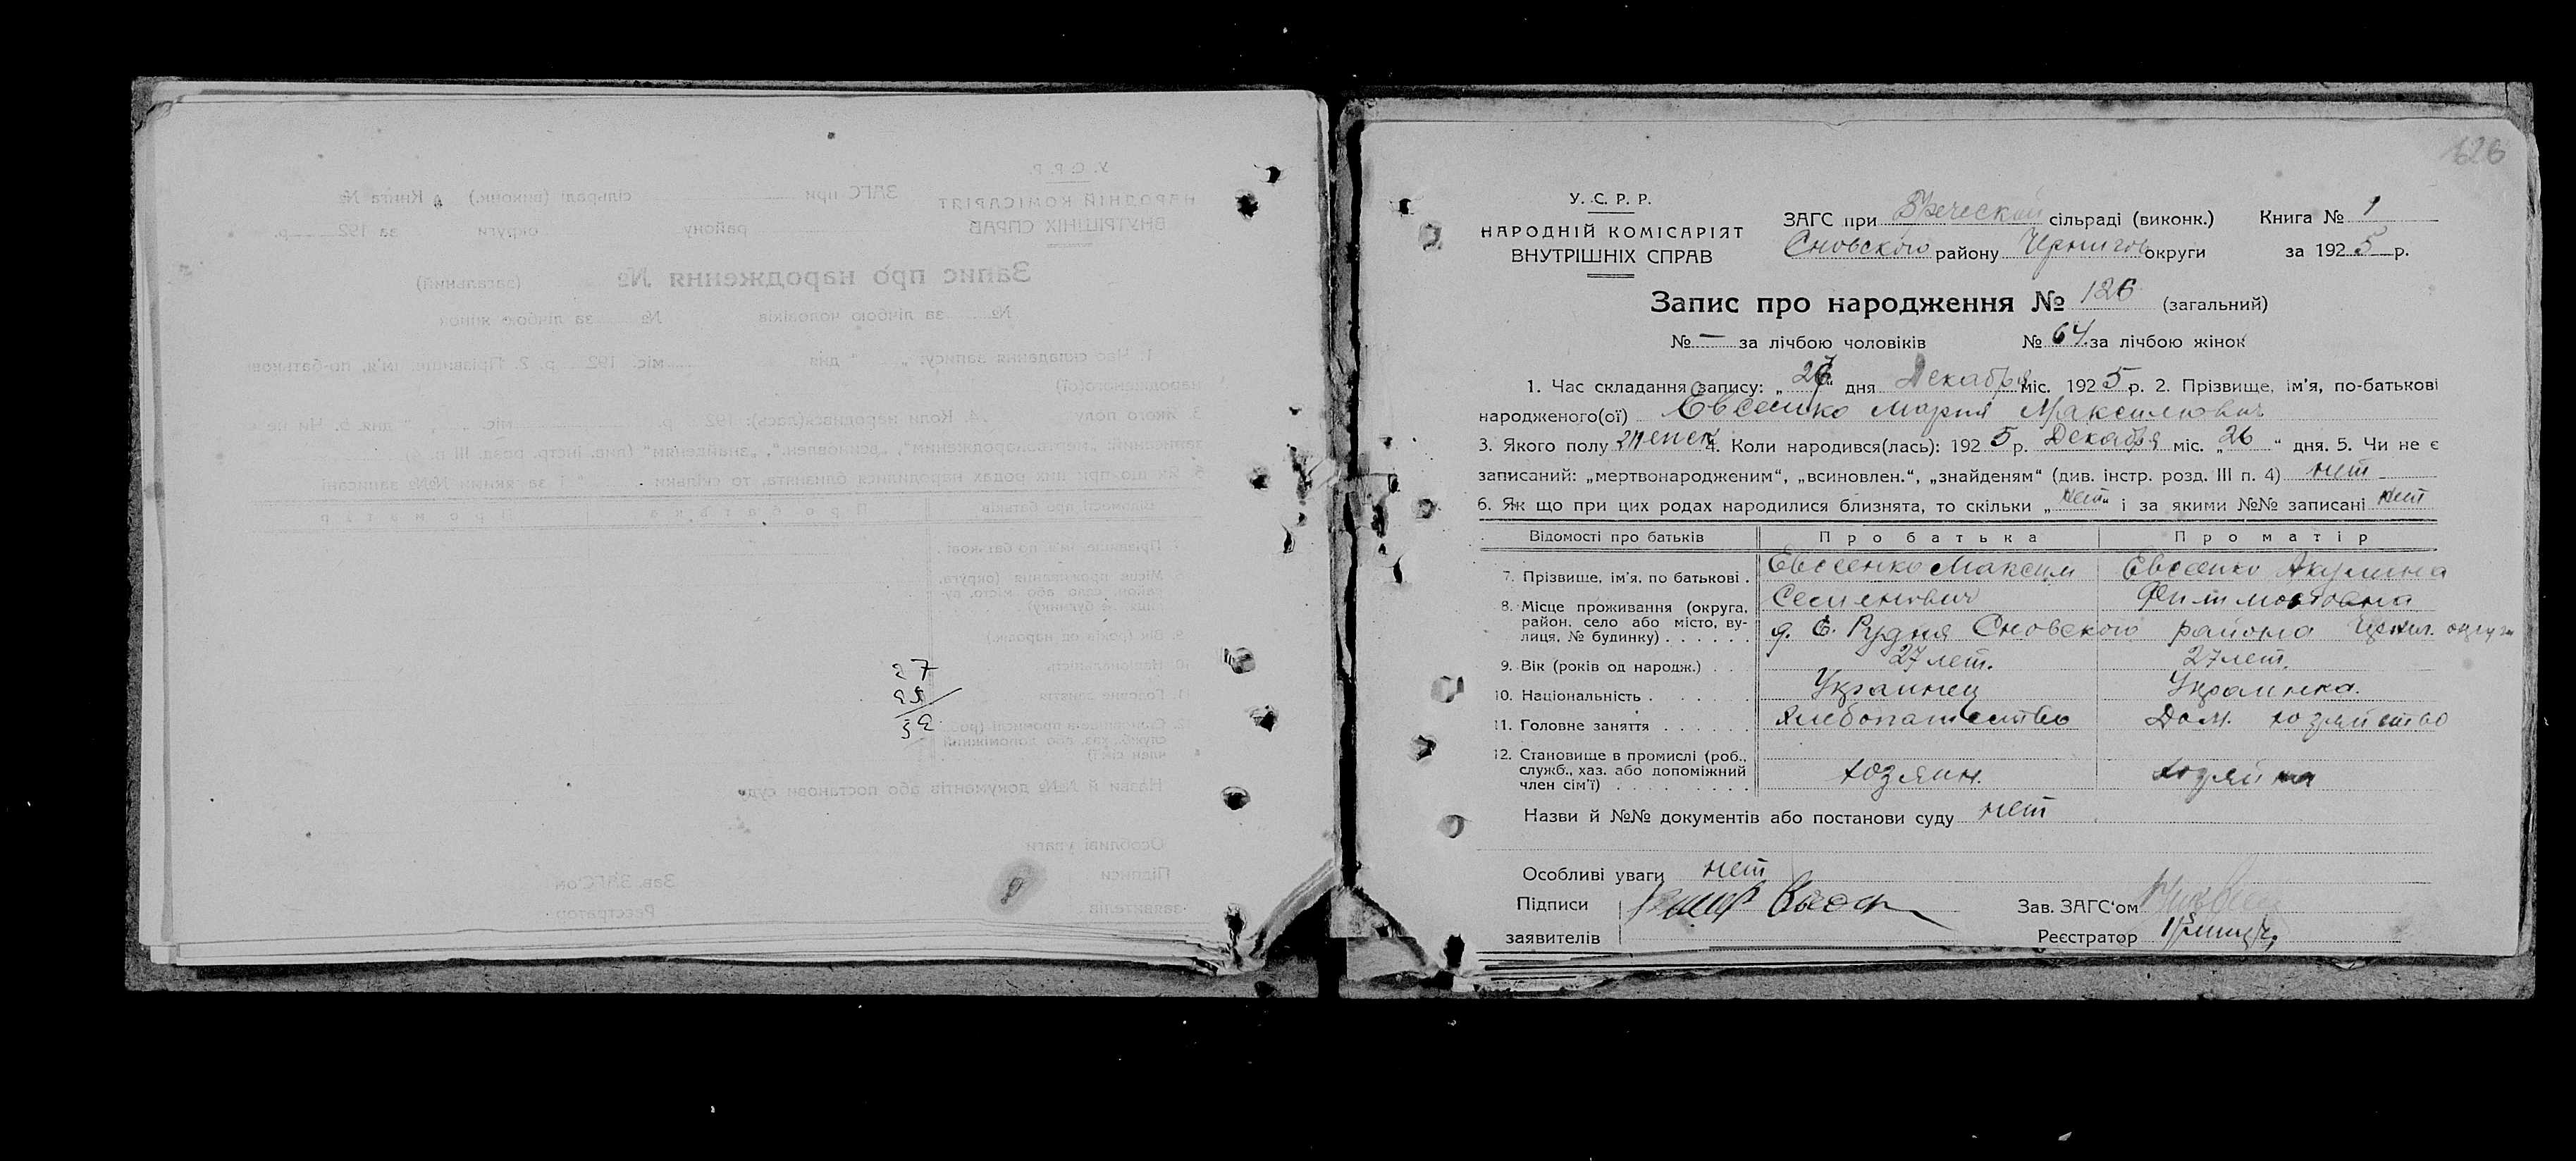 27
25
52
126
У. С. Р. Р.
НАРОДНІЙ КОМІСАРІЯТ
ВНУТРІШНІХ СПРАВ
ЗАГС при сільраді (виконк.) Книга № 1
Сновского району Чернигов округи за 1925 р.
Запис про народження № 126 (загальний)
№ — за лічбою чоловіків № 64 за лічбою жінок
1. Час складання запису: „27“ дня Декабря міс. 1925 р. 2. Прізвище, ім’я, по-батькові
народженого(ої) Евсеенко Мария Максимович
3. Якого полу женск 4. Коли народився(лась): 1925 р. Декабря міс. „26“ дня. 5. Чи не є
записаний: „мертвонародженим“, „всиновлен.“, „знайденям“ (див. інстр. розд. III п. 4) нет
6. Як що при цих родах народилися близнята, то скільки „нет“ і за якими №№ записані нет
Відомості про батьків Про батька Про матір
7. Прізвище, ім’я, по батькові . Евсеенко Максим Евсеенко Акулина
Семенович Филимоновна
8. Місце проживання (округа,
район, село або місто, ву-
лиця, № будинку) . . . . . . д. Е. Рудня Сновского района Черниг. округи
9. Вік (років од народж.) . . 27 лет. 27 лет.
10. Національність . . . . . . Украинец Украинка.
11. Головне заняття . . . . . . Хлебопашество Дом. хозяйство
12. Становище в промислі (роб.,
служб., хаз. або допоміжний
член сім’ї) . . . . . . . . . хозяин. хозяйка
Назви й №№ документів або постанови суду нет
Особливі уваги нет
Підписи
заявителів
Зав. ЗАГС‘ом
Реєстратор